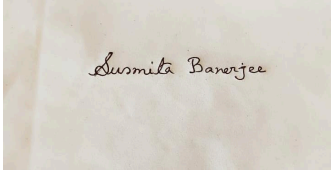 Susmita Banerjee